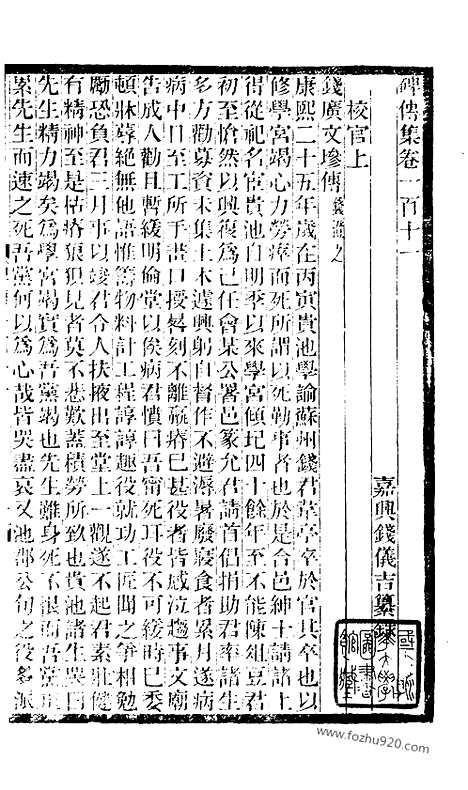 碑傳集卷一百十一
嘉興錢儀吉纂錄
校官上
錢廣文墋傳
康熙二十五年歲在丙寅貴池學諭蘇州錢君葦亭卒於官其卒也以
修學宮竭心力勞瘁而死所謂以死勤事者也於是合邑紳士請諸上
得從祀名宦貴池自明季以來學宮傾圮四十餘年至不能陳俎豆君
初至愴然以興復為己任會某公署邑篆允君請首倡捐助君率諸生
多方勸募資未集土木遽興躬自督作不避溽暑廢寢食者累月遂病
病中日至工所手畫口授晷刻不離羸瘠已甚役者皆感泣趨事文廟
告成人勸且暫緩明倫堂以俟病君憤曰吾甯死耳役不可緩時已委
頓牀蓐絕無他語惟籌物料計工程諄諄趣役就功工匠聞之爭相勉
勵恐負君三月事以竣君令人扶掖出至堂上一觀遂不起君素壯健
有精神至是枯瘠狼狽見者莫不悲歎蓋積勞所致也貴池諸生哭曰
先生精力竭矣為學宮竭實為吾黨竭也先生雖身死不恨而吾黨可
累先生而速之死吾黨何以為心哉皆哭盡哀又池郡公旬之役多派
國立
大學
圖書
館藏
www.fozhu920.com